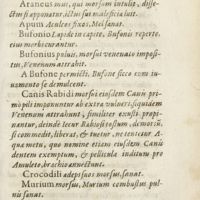 Araneus muri, qui morsum intulit, dissect
tus si apponatur, ictus sui maleficia luit.
Apum Aculeos fixos, Mel sanat.
Bufonio Lapide in capite, Bufonis reperto,
eius morbi curantur.
Bufonius puluis, morsui venenato impositus,
Venenum attrahit.
A Bufone permissti, Bufone sicco cum iu
uamento se demulcent.
Canis Rabidi morsui eiusdem Canis pri mò
pili imponuntur ab extra vulneri, siquidem
Venenum attrahunt; similiter exusti propi-
nantur, deinde Iecur Rabiosi tostum, de mor-
si commedit, liberat, & tuetur, ne tentetur A-
quæ metu, quo nomine etiam eiusdem Canis
dentem exemptum, & pellicula inditum pro
Amuleto, brachio annectunt.
Crocodili adeps suos morsus, sanat.
Murium morsus, Murium combustus pul-
uis sanat.